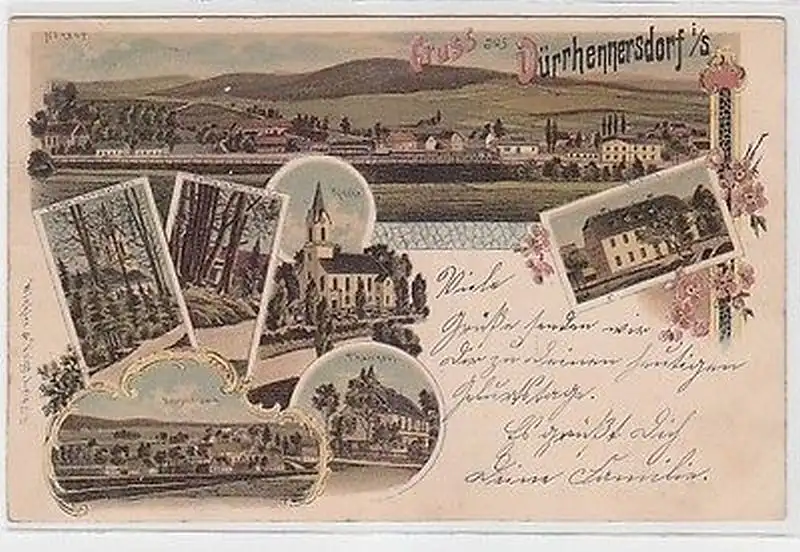 Gruss aus Dürrhennersdorf i/S
Viele
Grüße senden wir
Dir zu Deinem heutigen
Geburtstage.
Es grüßt Dich
Deine Familie.